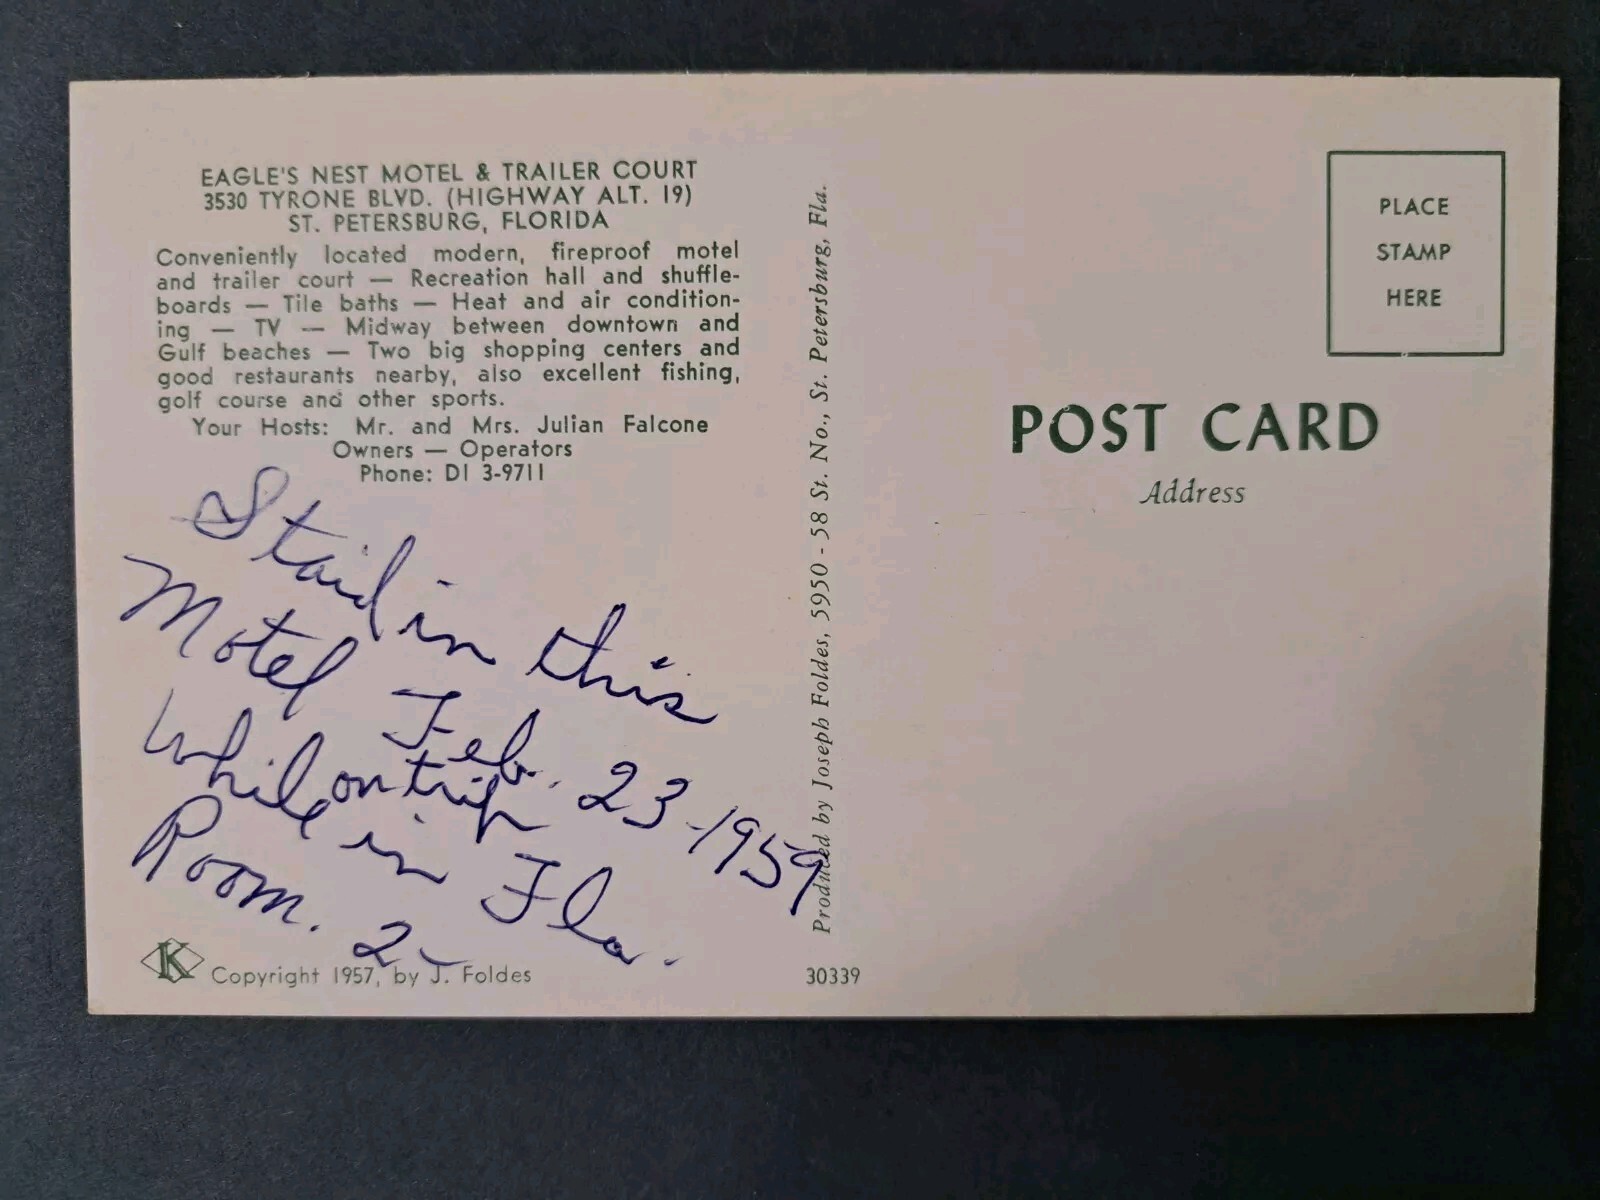 EAGLE'S NEST MOTEL & TRAILER COURT
3530 TYRONE BLVD. (HIGHWAY ALT. 19)
ST. PETERSBURG, FLORIDA
Conveniently located modern, fireproof motel
and trailer court — Recreation hall and shuffle-
boards — Tile baths — Heat and air condition-
ing — TV — Midway between downtown and
Gulf beaches — Two big shopping centers and
good restaurants nearby, also excellent fishing,
golf course and other sports.
Your Hosts: Mr. and Mrs. Julian Falcone
Owners — Operators
Phone: DI 3-9711
Staid in this
Motel Feb. 23-1959
While on trip
in Fla.
Room. 2-
K
Copyright 1957, by J. Foldes
Produced by Joseph Foldes, 5950 - 58 St. No., St. Petersburg, Fla.
30339
PLACE
STAMP
HERE
POST CARD
Address